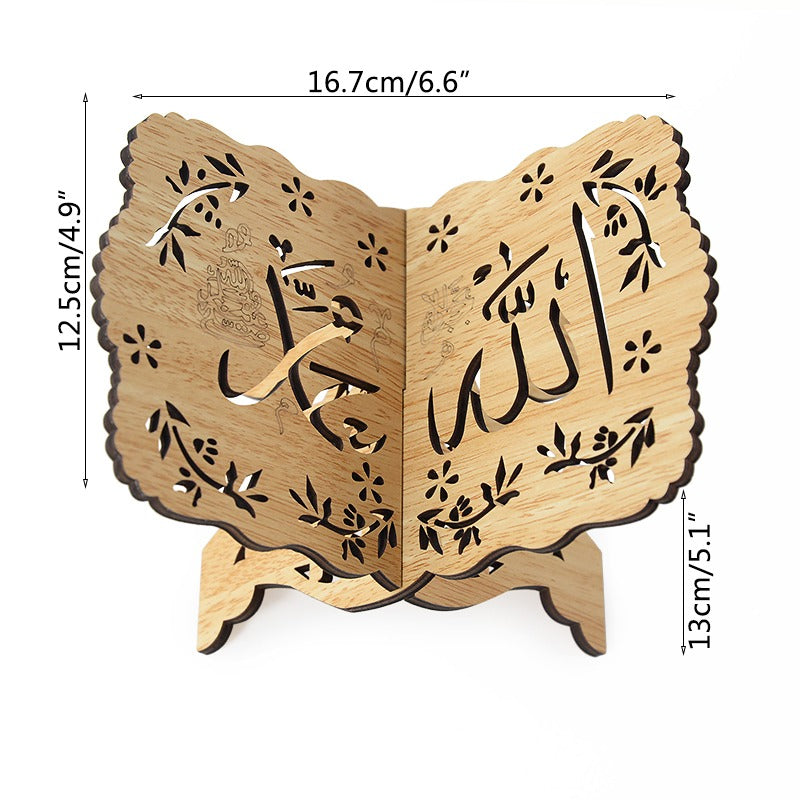 16.7cm/6.6”
12.5cm/4.9”
الله
محمد
13cm/5.1”